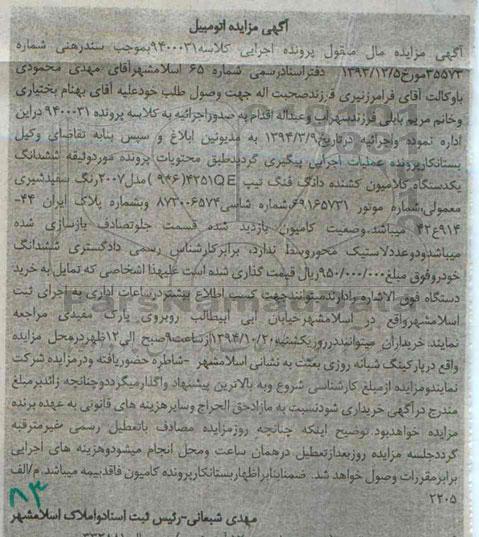 آگهی مزایده اتومبیل
آگهی مزایده مال منقول پرونده اجرایی کلاسه۹۴۰۰۰۳۱بموجب سندرهنی شماره
۳۵۵۷۳مورخ۱۳۹۳/۱۲/۵ دفتراسنادرسمی شماره ۶۵ اسلامشهرآقای مهدی محمودی
باوکالت آقای فرامرزنیری فرزندصحبت اله جهت وصول طلب خودعلیه آقای بهنام بختیاری
وخانم مریم بابلی فرزندسهراب وعبداله اقدام به صدوراجرائیه به کلاسه پرونده ۹۴۰۰۰۳۱ دراین
اداره نموده واجرائیه درتاریخ۱۳۹۴/۳/۹ به مدیونین ابلاغ و سپس بنابه تقاضای وکیل
بستانکارپرونده عملیات اجرایی پیگیری گردیدطبق محتویات پرونده موردوثیقه ششدانگ
یکدستگاه کلامیون کشنده دانگ فنگ تیپ ۴۲۵۱QE(۹۴۶ )مدل۲۰۰۷رنگ سفیدشیری
معمولی،شماره موتور ۶۹۱۶۵۷۳۱،شماره شاسی۸۷۳۰۰۶۵۷۴ وبشماره پلاک ایران ۴۴-
۹۱۴ع۴۲ میباشد.وضعیت کامیون بازدید شده قسمت جلوتصادف بازسازی شده
میباشدودوعددلاستیک محوروسط ندارد، برابرکارشناس رسمی دادگستری ششدانگ
خودروفوق مبلغ۹۵۰/۰۰۰/۰۰۰ریال قیمت گذاری شده است علیهذا اشخاصی که تمایل به خرید
دستگاه فوق الاشاره رادارندمیتوانندجهت کسب اطلاع بیشتردرساعات اداری به اجرای ثبت
اسلامشهرواقع در اسلامشهرخیابان ابی ابیطالب روبروی پارک مفیدی مراجعه
نمایند.خریداران میتواننددرروزیکشنبه۱۳۹۴/۱۰/۲۰ازساعت۹صبح الی۱۲ظهردرمحل مزایده
واقع درپارکینگ شبانه روزی بعثت به نشانی اسلامشهر -شاطره حضوریافته ودرمزایده شرکت
نمایندومزایده ازمبلغ کارشناسی شروع وبه بالاترین پیشنهاد واگذارمیگرددوچنانچه زائدبرمبلغ
مندرج درآگهی خریداری شودنسبت به مازادحق الحراج وسایرهزینه های قانونی به عهده برنده
مزایده خواهدبود.توضیح اینکه چنانچه روزمزایده مصادف باتعطیل رسمی غیرمترقبه
گرددجلسه مزایده روزبعدازتعطیل درهمان ساعت ومحل انجام میشودوهزینه های اجرایی
برابرمقررات وصول خواهد شد. ضمنابنابراظهاربستانکارپرونده کامیون فاقدبیمه میباشد.م/الف
۲۲۰۵
۸۳
مهدی شبعانی-رئیس ثبت اسنادواملاک اسلامشهر